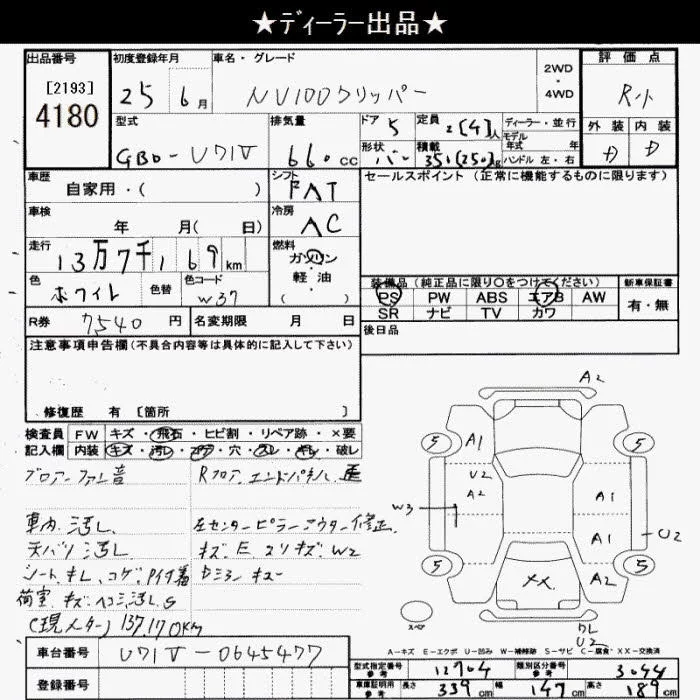 ★ディーラー出品★
出品番号 初度登録年月 車名・グレード 2WD・4WD 評価点
[2193]
4180
25 6月 NV100クリッパー R小
外装 内装
型式 排気量 ドア 5 定員 2[4]人 ディーラー・並行
モデル年式 年
GBD-U71V 660cc 形状 バン 積載 350(250)g ハンドル 左・右
車歴 自家用・( ) シフト FAT セールスポイント(正常に機能するものに限ります)
車検 年 月( 日) 冷房 AC
走行 13万7千169km 燃料 ガソリン・軽・油( )
色 ホワイト 色替 色コード W37
装備品(純正品に限り○をつけてください) 新車保証書
PS PW ABS エアB AW 有・無
SR ナビ TV カワ
R券 7540円 名変期限 月 日 後日品
注意事項申告欄(不具合内容等は具体的に記入して下さい)
修復歴 有 [箇所 ]
検査員 FW キズ・飛石・ヒビ割・リペア跡・×要
記入欄 内装 キズ・汚レ・コゲ・穴・スレ・キレ・破レ
ブロアーファン音 Rフロア、エンドパネル 歪
車内 汚レ、 左センターピラーアウター修正
天バリ 汚レ キズ、E、スリキズ、W2
シートキレ、コゲ、
荷室 キズ ヘコミ汚レS
(現メーター) 137,170km
A2
5 A1 5
U2
A2 A1
W3
A1 U2
5 XX A2 5
スペア
U2
A-キズ E-エクボ U-凹み W-補修跡 S-サビ C-腐食 XX-交換済
車台番号 U71V-0645477
登録番号
型式指定番号 参考 12704 類別区分番号 参考 3044
車庫証明用 参考 長さ 339cm 幅 147cm 高さ 189cm